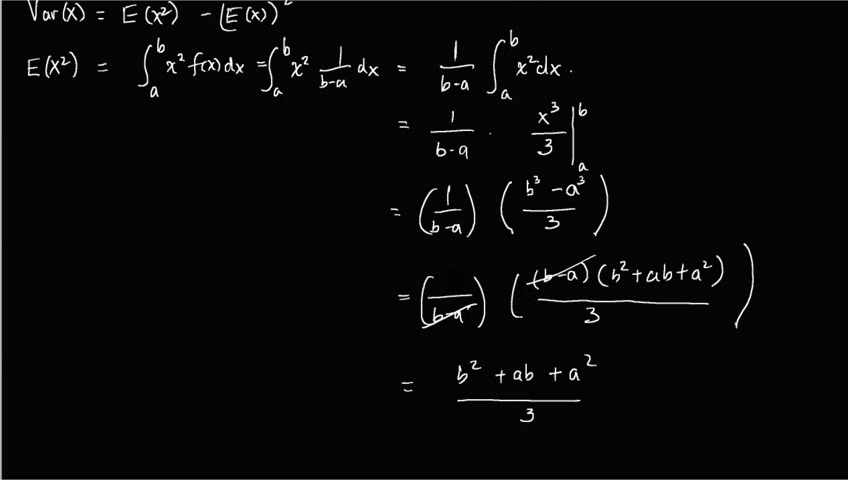 Var(X) = E(X²) - (E(X))²
E(X²) = ∫ₐᵇ x² f(x) dx = ∫ₐᵇ x² 1/(b-a) dx = 1/(b-a) ∫ₐᵇ x² dx.
= 1/(b-a) · x³/3 |ₐᵇ
= (1/(b-a)) ((b³ - a³)/3)
= ( /(b-a)) ((b-a)(b² + ab + a²)/3)
= (b² + ab + a²)/3